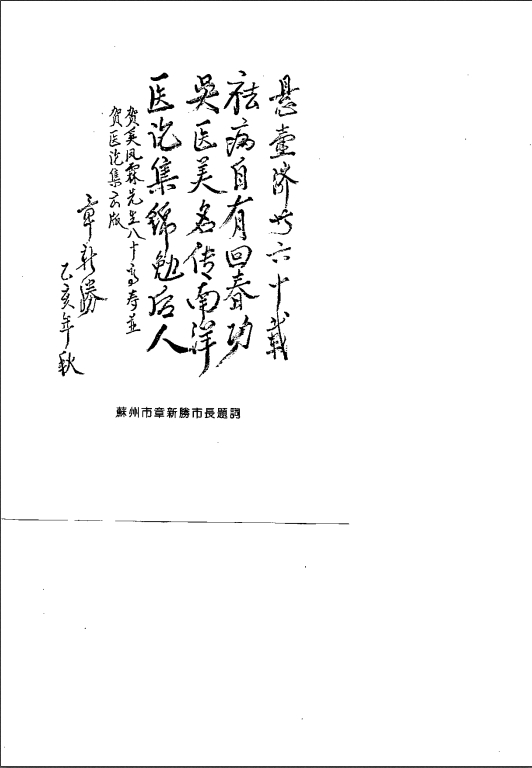 悬壶济世六十载
祛病自有回春功
吳医美名传南洋
医论集锦勉后人
贺吴凤霖先生八十高寿並
贺医论集出版
章新勝
乙亥年秋
蘇州市章新勝市長題詞